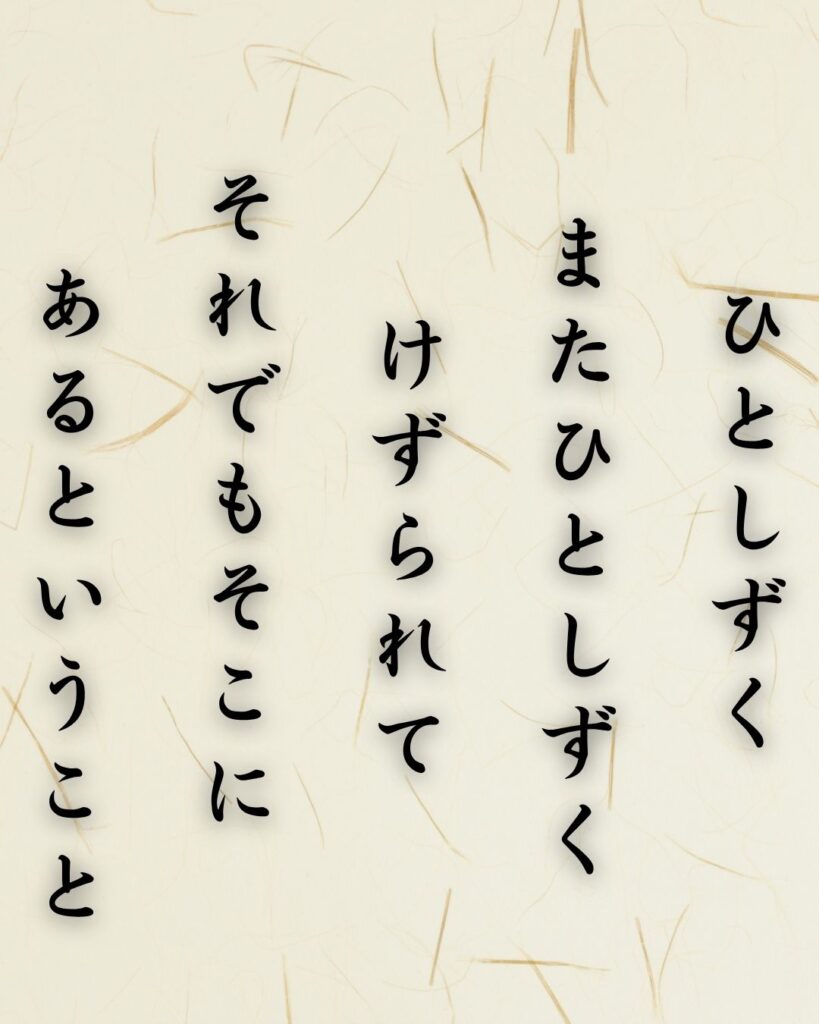 ひとしずく
またひとしずく
けずられて
それでもそこに
あるということ